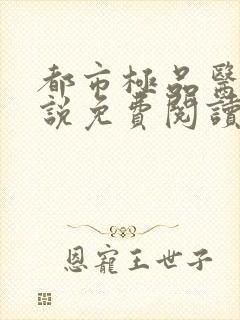 都市極品醫
說免費閱讀
恩寵王世子